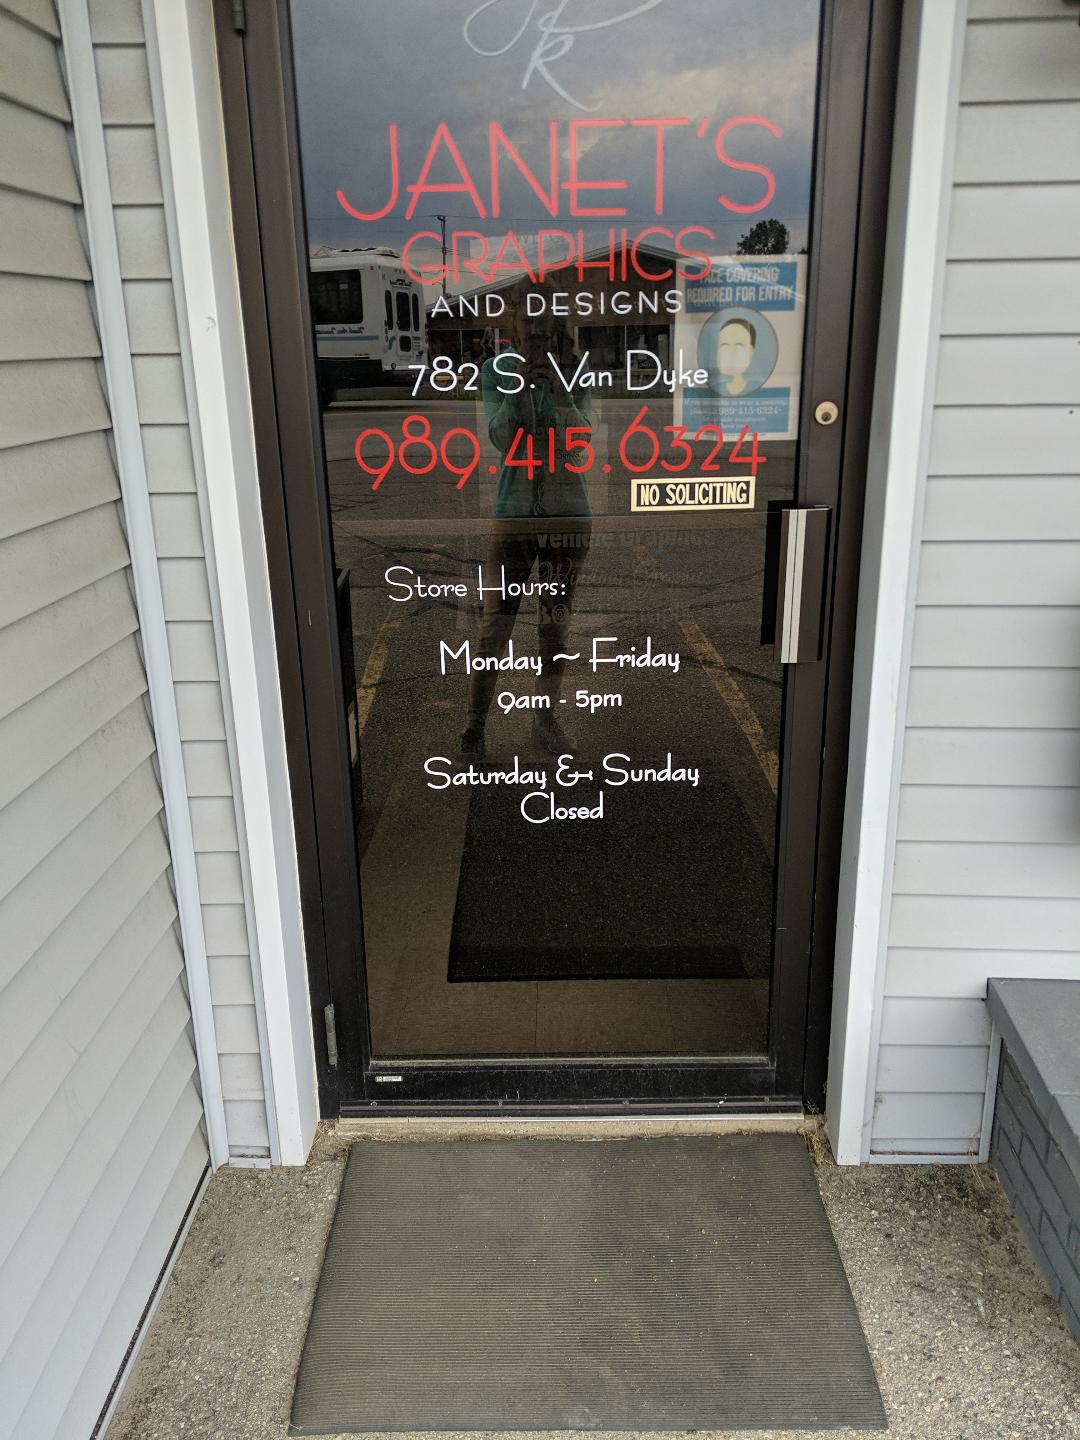 JANET'S
GRAPHICS
AND DESIGNS
FACE COVERING
REQUIRED FOR ENTRY
782 S. Van Dyke
989-415-6324
989.415.6324
NO SOLICITING
Vehicle Graphics
Store Hours:
Monday ~ Friday
9am - 5pm
Saturday & Sunday
Closed